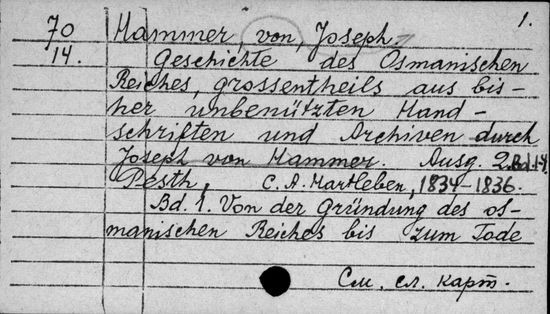 1.
70 Hammer, von, Joseph.
14. Geschichte des Osmanischen
Reiches, grossentheils aus bis-
her unbenützten Hand-
schriften und Archiven durch
Joseph von Hammer. Ausg. 2. Bd. 1-4.
Pesth, C. A. Hartleben, 1834-1836.
Bd. 1. Von der Gründung des os-
manischen Reiches bis zum Tode
См. сл. карт.